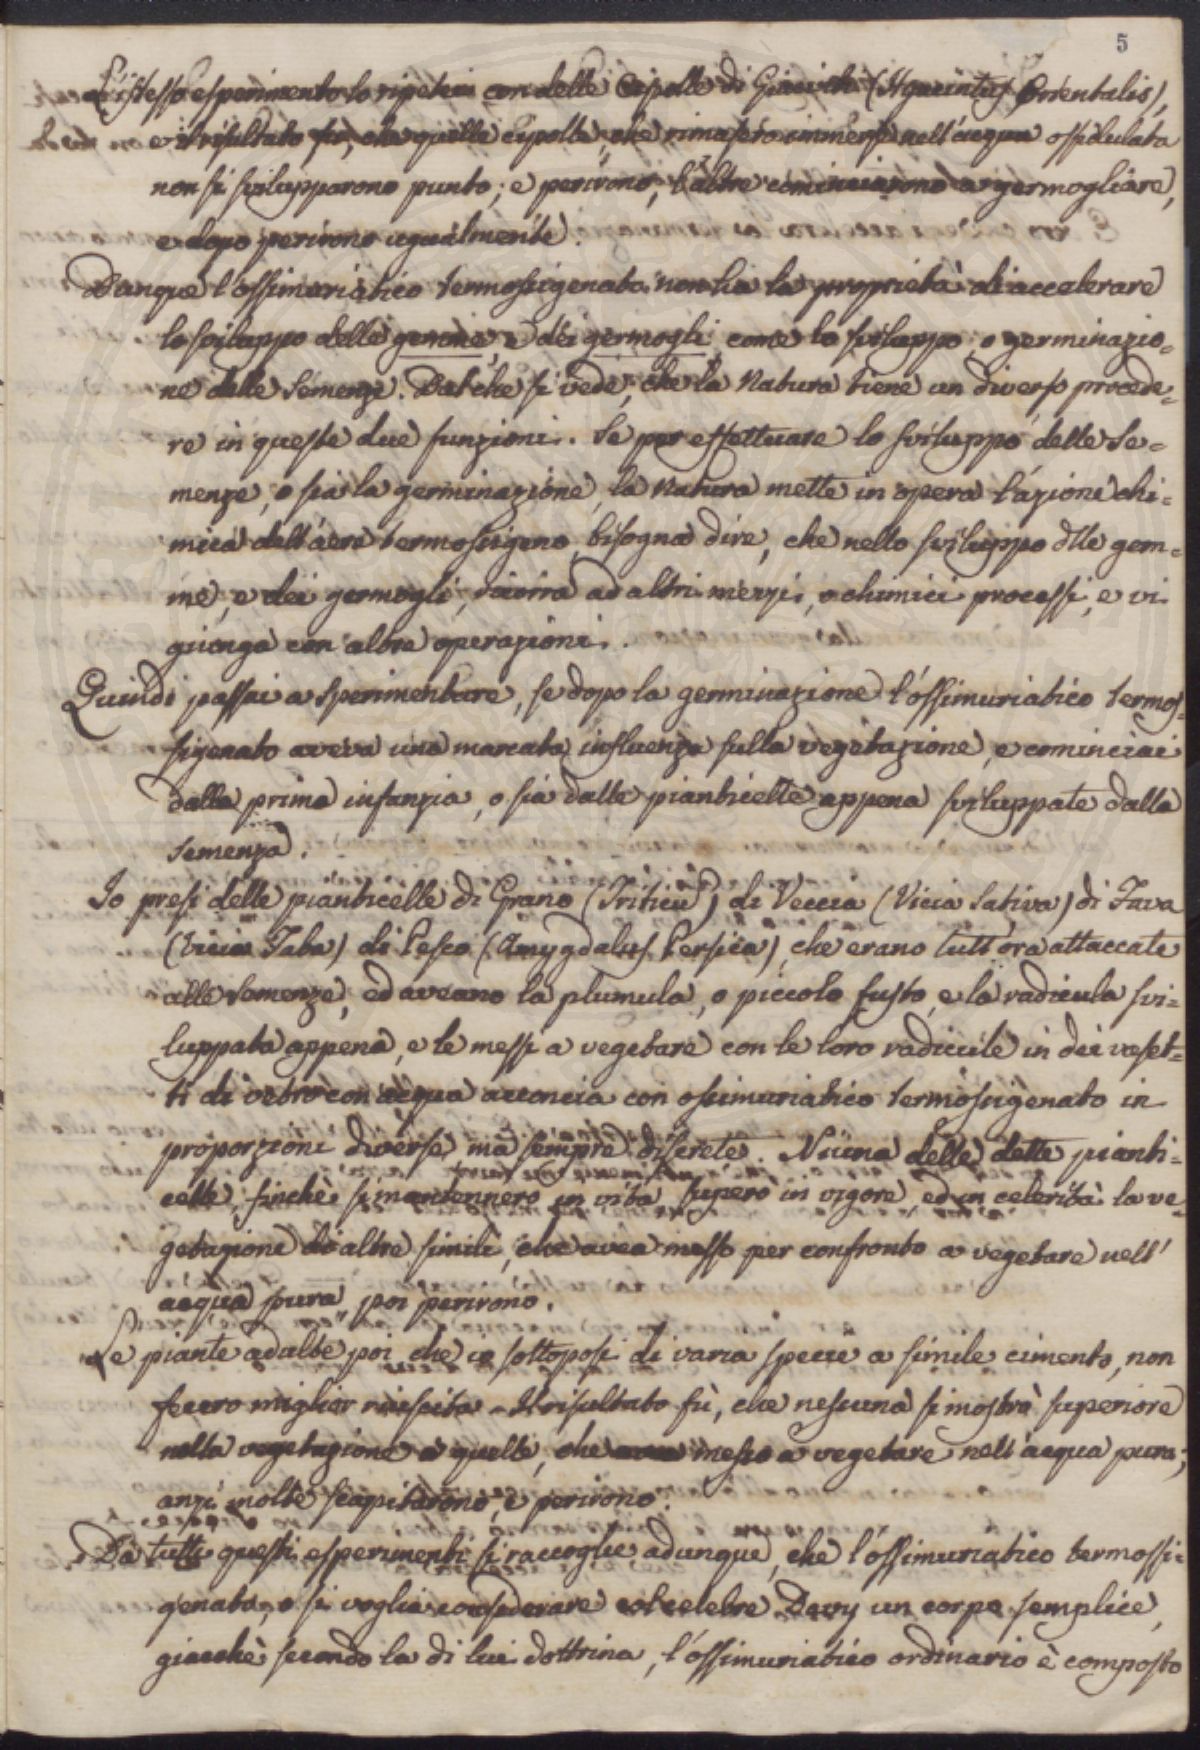 5
L'istesso esperimento lo ripetei con delle Cipolle di Giacinthi (Hyacintus Orientalis),
e il risultato fu, che quelle cipolle, che rimasero immerse nell'acqua ossidulata
non si svilupparono punto; e perirono, l'altre cominciarono a germogliare,
e dopo perirono ugualmente.
Dunque l'ossimuriatico termossigenato non ha la proprietà di accelerare
lo sviluppo delle gemme, e dei germogli come lo sviluppo, o germinazio=
ne delle Semenze. Dal che si vede, che la Natura tiene un diverso procede=
re in queste due funzioni. Se per effettuare lo sviluppo delle Se=
menze, o sia la germinazione, la Natura mette in opera l'azione chi=
mica dell'aere termossigeno, bisogna dire, che nello sviluppo dlle gem=
me, e dei germogli, ricorra ad altri mezzi, o chimici processi, e vi
giunga con altre operazioni.
Quindi passai a sperimentare, se dopo la germinazione l'ossimuriatico termos=
sigenato aveva una marcata influenza sulla vegetazione, e cominciai
dalla prima infanzia, o sia dalle pianticelle appena sviluppate dalla
semenza.
Io presi delle pianticelle di Grano (Triticu) di Veccia (Vicia Sativa) di Fava
(Vicia Faba) di Pesco (Amygdalus Persica), che erano tutt'ora attaccate
alle Semenze, ed aveano la plumula, o piccolo fusto, e la radicula svi=
luppata appena, e le messi a vegetare con le loro radicule in dei vaset=
ti di vetro con acqua acconcia con ossimuriatico termossigenato in
proporzioni diverse ma sempre discrete. Niuna delle dette pianti=
celle, finchè si mantennero in vita superò in vigore, ed in celerità la ve=
getazione di altre simili, che avea messo per confronto a vegetare nell'
acqua pura, poi perirono.
Le piante adalte poi che io sottoposi di varia specie a simile cimento, non
fecero miglior riuscita. Il risultato fù, che nessuna si mostrò superiore
nella vegetazione a quelle, che messe a vegetare nell'acqua pura;
anzi molte scapitarono, e perirono.
Da tutti questi esperimenti si raccoglie adunque, che l'ossimuriatico termossi=
genato, o si voglia considerare col celebre Davy un corpo semplice,
giacchè secondo la di lui dottrina, l'ossimuriatico ordinario è composto